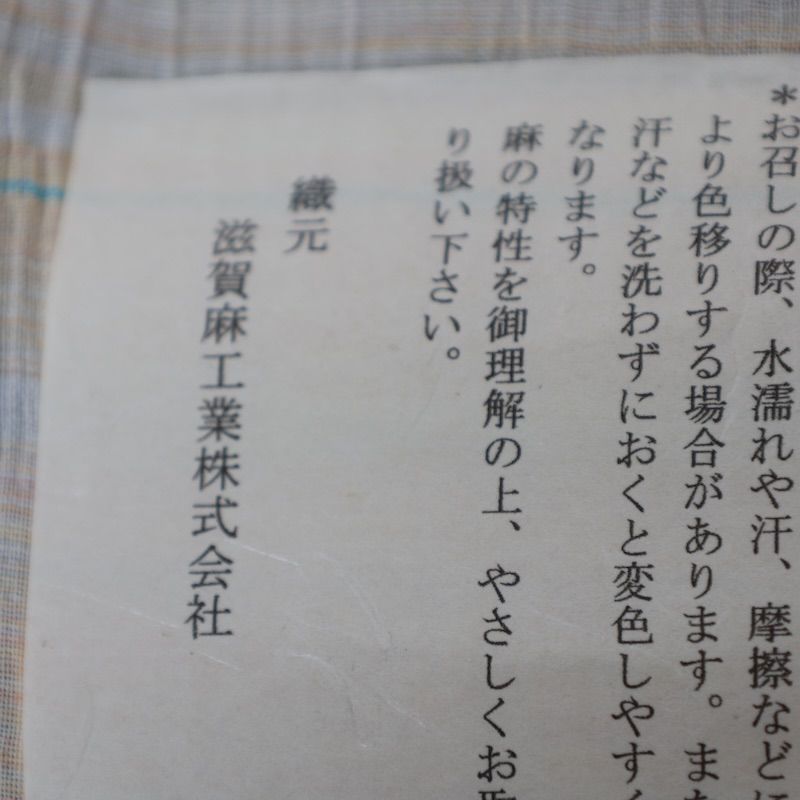 *お召しの際、水濡れや汗、摩擦などに
より色移りする場合があります。また
汗などを洗わずにおくと変色しやすく
なります。
麻の特性を御理解の上、やさしくお取
り扱い下さい。
織元
滋賀麻工業株式会社